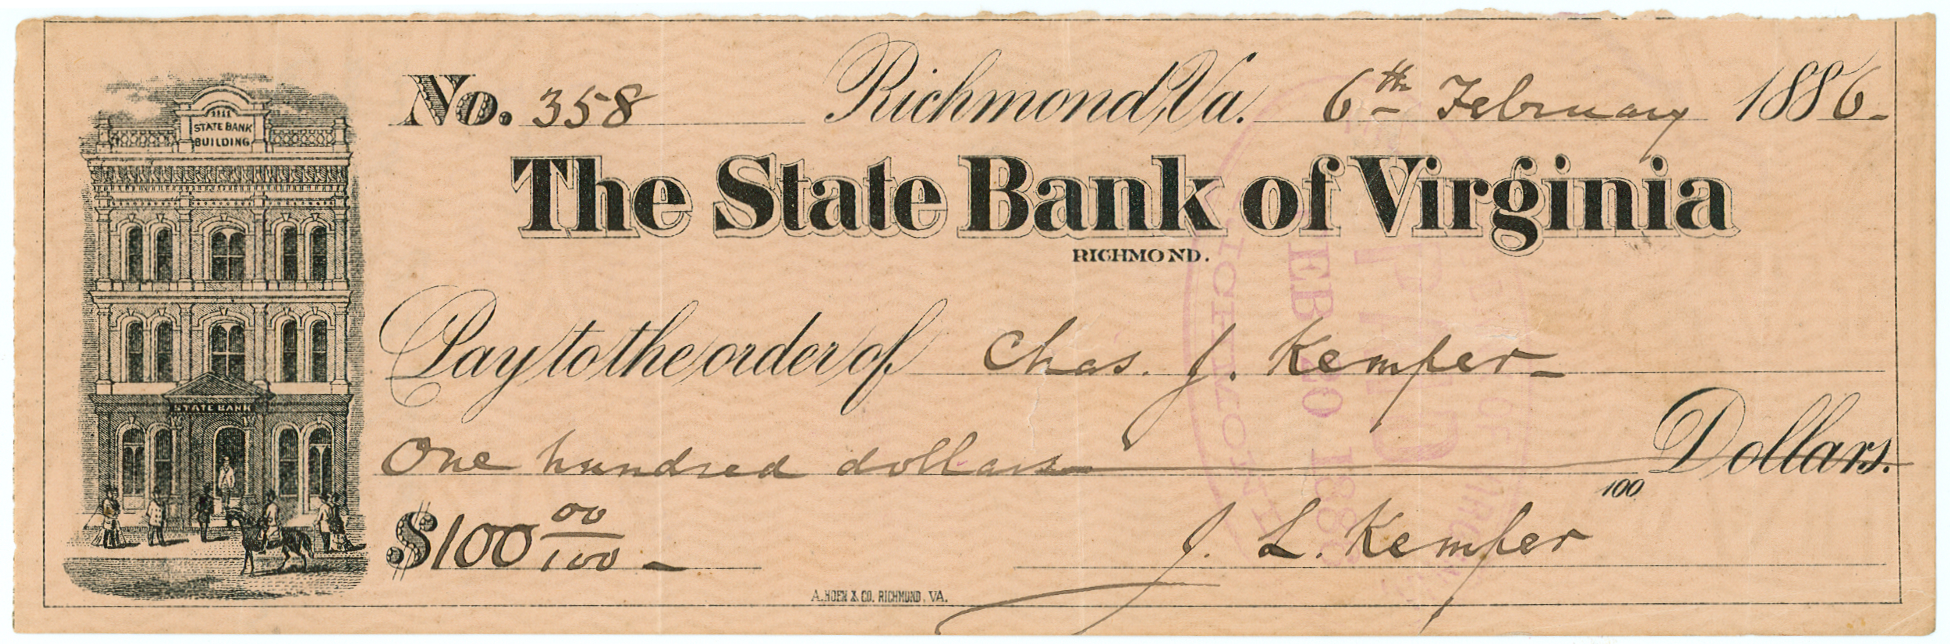 STATE BANK
BUILDING
STATE BANK
No. 358 Richmond, Va. 6th February 1886.
The State Bank of Virginia
RICHMOND.
Pay to the order of Chas. J. Kemper
One hundred dollars Dollars.
100
$100 00/100
J. L. Kemper
A. HOEN & CO. RICHMOND, VA.
PAID
FEB 20 1886